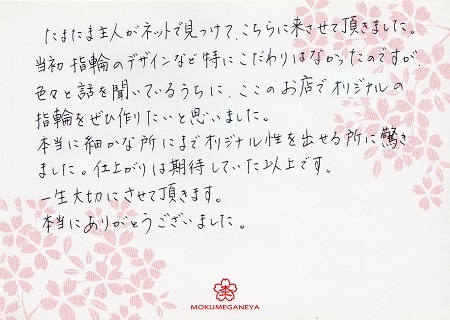 たまたま主人がネットで見つけて、こちらに来させて頂きました。
当初 指輪のデザインなど特にこだわりはなかったのですが、
色々と話を聞いているうちに、ここのお店でオリジナルの
指輪をぜひ作りたいと思いました。
本当に細かな所にまでオリジナル性を出せる所に驚き
ました。仕上がりは期待していた以上です。
一生大切にさせて頂きます。
本当にありがとうございました。
MOKUMEGANEYA